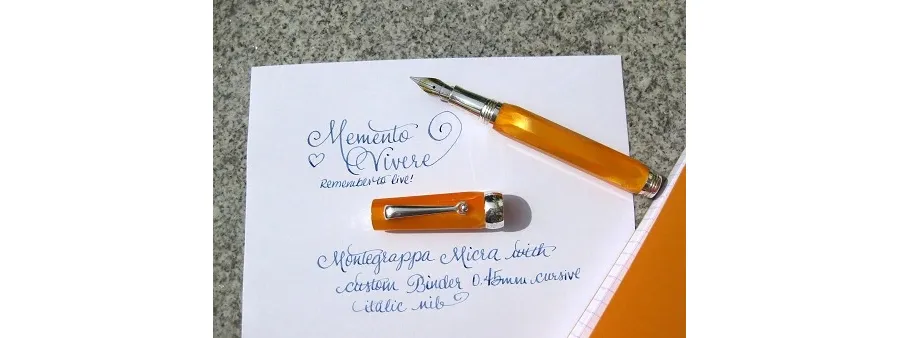 Memento
Vivere
Remember to live!
Montegrappa Micra with
custom Binder 0.45mm cursive
italic nib